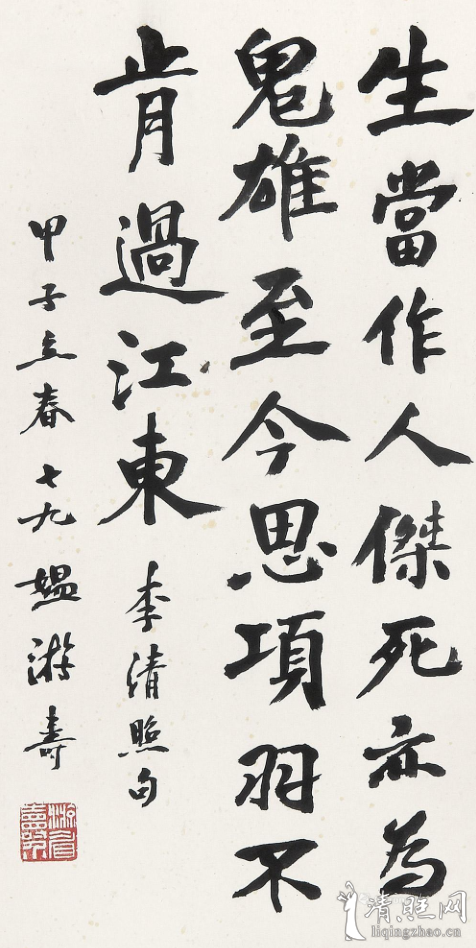 生當作人傑死亦為
鬼雄至今思項羽不
肯過江東
李清照句
甲子立春七九媪游壽
清照网
liqingzhao.cn